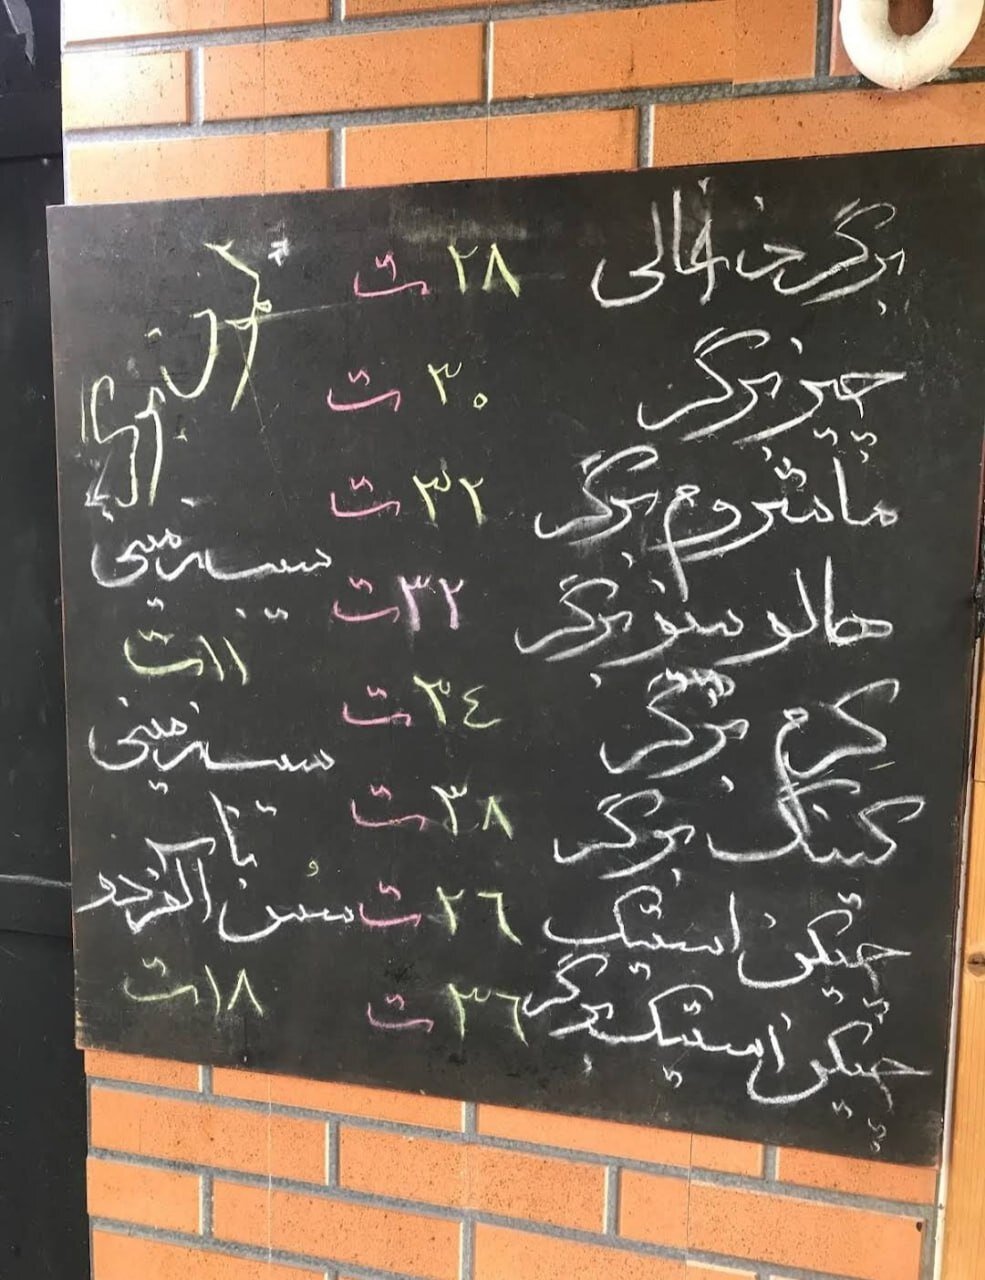 برگر خالی ۲۸ ت
چیز برگر ۳۰ ت
ماشروم برگر ۳۲ ت
هالوپینو برگر ۳۲ ت
کرم برگر ۳٤ ت
کینگ برگر ۳۸ ت
چیکن استیک ۲٦ ت
چیکن استیک برگر ۳٦ ت
سیب زمینی
۱۱ ت
سیب زمینی
با
سُس آلفردو
۱۸ ت